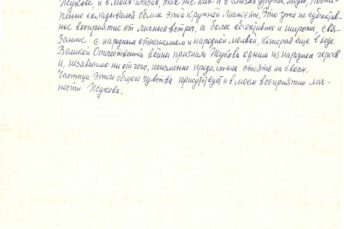 Жукова, и в моих глазах, так же как и в глазах других людей, посте-
пенно складывался облик этой крупной личности. Это уже не субъектив-
ное восприятие от личных встреч, а более объективное и широкое, свя-
занное с народным отношением и народной молвой, которая еще в ходе
Великой Отечественной войны признала Жукова одним из народных героев
и, независимо ни от чего, неизменно продолжала стоять на своем.
Частица этого общего чувства присутствует и в моем восприятии лич-
ности Жукова.